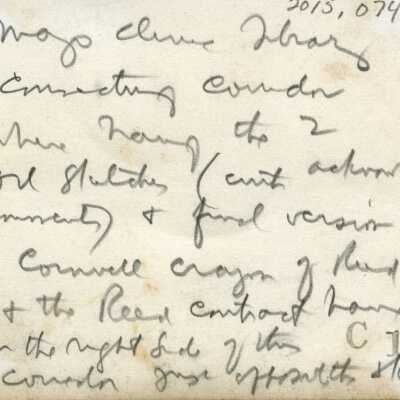 2015, 074
Mayo Clinic Library
Connecting Corridor
where hang the 2
oil sketches (with acknow
ments) & final version
Cornwell crayon of Reed
& the Reed contract hang
on the right side of this
C I
corridor just opposite the